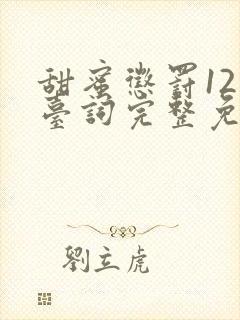 甜蜜懲罰12
臺詞完整免
劉立虎